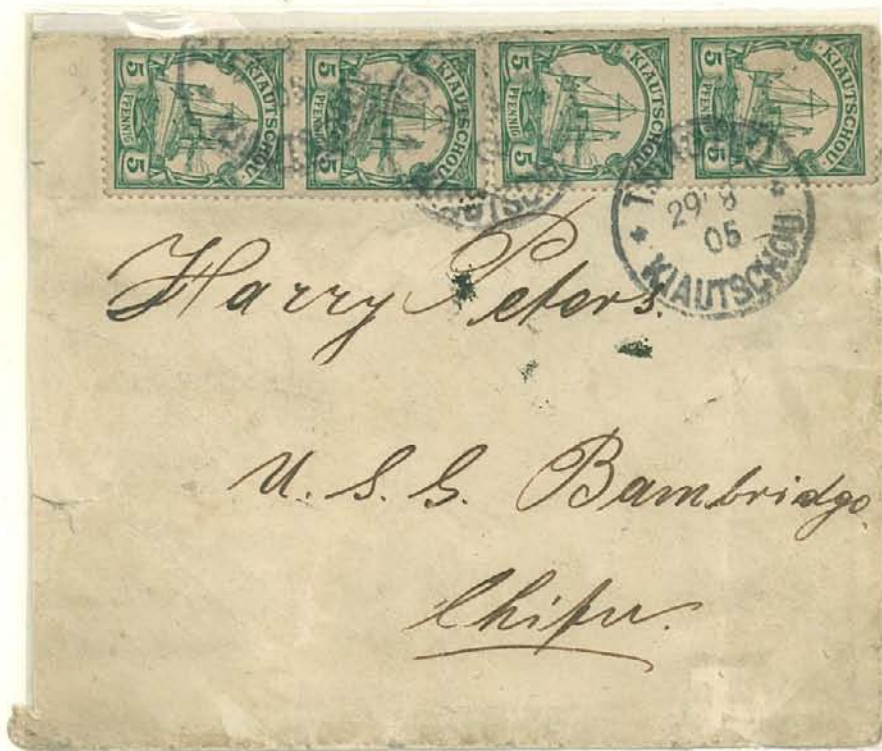 KIAUTSCHOU
5 PFENNIG 5
KIAUTSCHOU
5 PFENNIG 5
KIAUTSCHOU
5 PFENNIG 5
KIAUTSCHOU
5 PFENNIG 5
29 8
05
KIAUTSCHOU
Harry Peters.
U. S. S. Bambridge
Chifu.